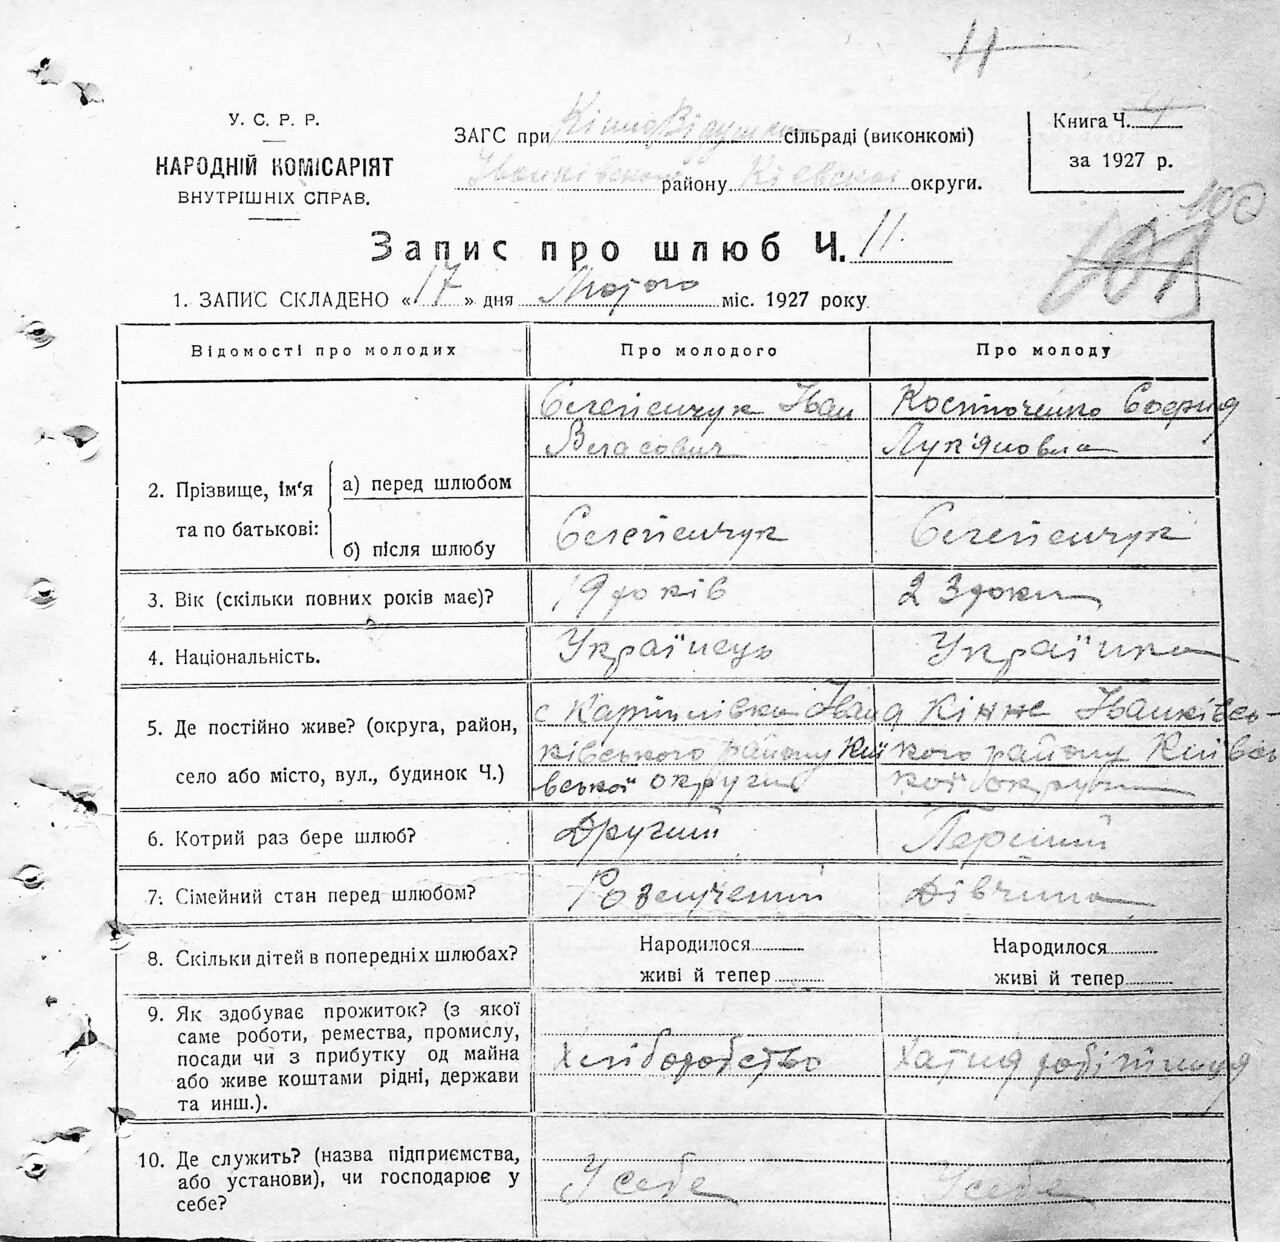 11
У. С. Р. Р.
НАРОДНІЙ КОМІСАРІЯТ
ВНУТРІШНІХ СПРАВ.
ЗАГС при сільраді (виконкомі)
Іванківського району Кіевской округи.
Книга Ч. 4
за 1927 р.
100
Запис про шлюб Ч. 11.
1. ЗАПИС СКЛАДЕНО «17» дня Лютого міс. 1927 року.
Відомості про молодих
Про молодого
Про молоду
2. Прізвище, ім'я та по батькові:
а) перед шлюбом
Селепенчук Іван
Власович
Костюченко София
Лук'яновна
б) після шлюбу
Селепенчук
Селепенчук
3. Вік (скільки повних років має)?
19 років
23 роки
4. Національність.
Українець
Українка
5. Де постійно живе? (округа, район,
село або місто, вул., будинок Ч.)
с Іван
ківського району Киї
вської округи
Іванківсь-
кого району Київсь
кої округи
6. Котрий раз бере шлюб?
Другий
Перший
7. Сімейний стан перед шлюбом?
Розлучений
Дівчина
8. Скільки дітей в попередніх шлюбах?
Народилося
живі й тепер
Народилося
живі й тепер
9. Як здобуває прожиток? (з якої
саме роботи, ремества, промислу,
посади чи з прибутку од майна
або живе коштами рідні, держави
та инш.).
Хліборобство
Хатня робітниця
10. Де служить? (назва підприємства,
або установи), чи господарює у
себе?
У себе
У себе